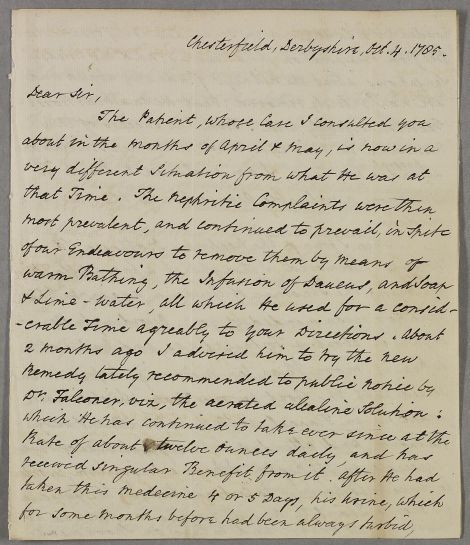 Chesterfield, Derbyshire, Oct. 4. 1785.
Dear Sir,
The Patient, whose Case I consulted you
about in the months of April & May, is now in a
very different Situation from what He was at
that Time. The Nephritic Complaints were then
most prevalent, and continued to prevail, in Spite
of our Endeavours to remove them by means of
warm Bathing, the Infusion of Daucus, and Soap
& Lime-water, all which He used for a consid-
-erable Time agreably to your Directions. About
2 months ago I advised him to try the new
Remedy lately recommended to public notice by
Dr. Falconer, viz, the aerated alcaline Solution:
which He has continued to take ever since at the
Rate of about twelve Ounces daily, and has
received singular Benefit from it. After He had
taken this medecine 4 or 5 Days, his Urine, which
for some months before had been always turbid,